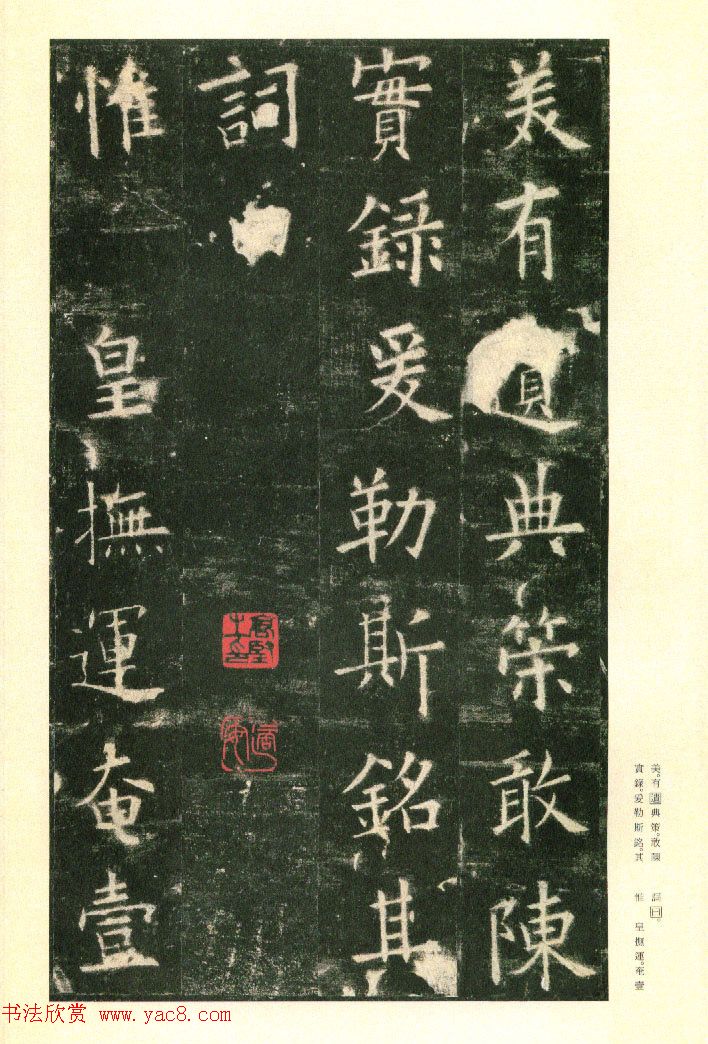 美有遺典策敢陳
實錄爰勒斯銘其
詞
惟 皇撫運奄壹
美。有遺典策。敢陳
實錄。爰勒斯銘。其
詞曰。
惟 皇撫運。奄壹
书法欣赏 www.yac8.com